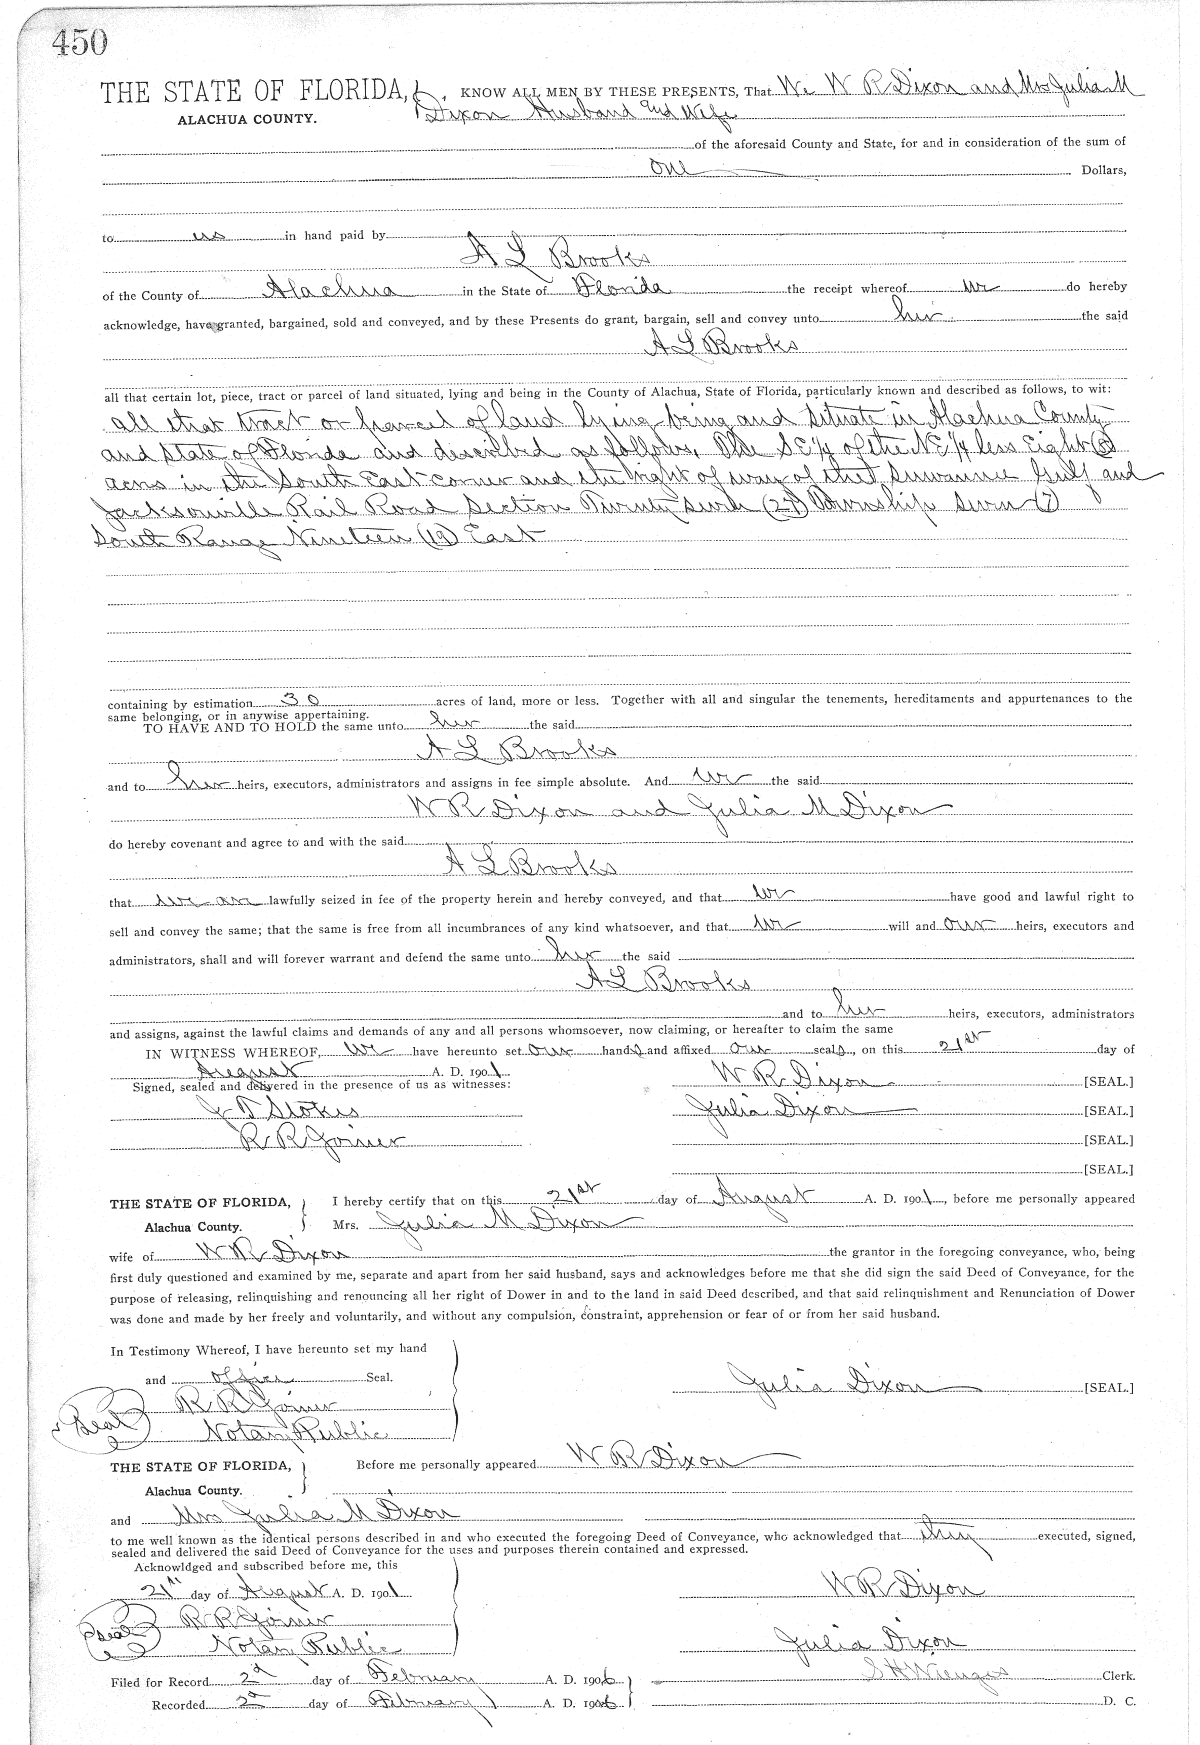 450
THE STATE OF FLORIDA, KNOW ALL MEN BY THESE PRESENTS, That We W R Dixon and Mrs Julia M
ALACHUA COUNTY. Dixon Husband and Wife
of the aforesaid County and State, for and in consideration of the sum of
one Dollars,
to us in hand paid by
A L Brooks
of the County of Alachua in the State of Florida the receipt whereof we do hereby
acknowledge, have granted, bargained, sold and conveyed, and by these Presents do grant, bargain, sell and convey unto her the said
A L Brooks
all that certain lot, piece, tract or parcel of land situated, lying and being in the County of Alachua, State of Florida, particularly known and described as follows, to wit:
all that tract or parcel of land lying being and situate in Alachua County
and State of Florida and described as follows, The SE 1/4 of the NE 1/4 less Eight (8)
acres in the South East corner and the right of way of the Suwannee Gulf and
Jacksonville Rail Road Section Twenty seven (27) Township seven (7)
South Range Nineteen (19) East
containing by estimation 30 acres of land, more or less. Together with all and singular the tenements, hereditaments and appurtenances to the
same belonging, or in anywise appertaining.
TO HAVE AND TO HOLD the same unto her the said
A L Brooks
and to her heirs, executors, administrators and assigns in fee simple absolute. And we the said
W R Dixon and Julia M Dixon
do hereby covenant and agree to and with the said
A L Brooks
that we are lawfully seized in fee of the property herein and hereby conveyed, and that we have good and lawful right to
sell and convey the same; that the same is free from all incumbrances of any kind whatsoever, and that we will and our heirs, executors and
administrators, shall and will forever warrant and defend the same unto her the said
A L Brooks
and to her heirs, executors, administrators
and assigns, against the lawful claims and demands of any and all persons whomsoever, now claiming, or hereafter to claim the same
IN WITNESS WHEREOF, we have hereunto set our hands and affixed our seals, on this 21st day of
August A. D. 1901
Signed, sealed and delivered in the presence of us as witnesses: W R Dixon [SEAL.]
J T Stokes Julia Dixon [SEAL.]
R R Joiner [SEAL.]
[SEAL.]
THE STATE OF FLORIDA, I hereby certify that on this 21st day of August A. D. 1901, before me personally appeared
Alachua County. Mrs. Julia M Dixon
wife of W R Dixon the grantor in the foregoing conveyance, who, being
first duly questioned and examined by me, separate and apart from her said husband, says and acknowledges before me that she did sign the said Deed of Conveyance, for the
purpose of releasing, relinquishing and renouncing all her right of Dower in and to the land in said Deed described, and that said relinquishment and Renunciation of Dower
was done and made by her freely and voluntarily, and without any compulsion, constraint, apprehension or fear of or from her said husband.
In Testimony Whereof, I have hereunto set my hand
and office Seal. Julia Dixon [SEAL.]
R R Joiner
Seal Notary Public
THE STATE OF FLORIDA, Before me personally appeared W R Dixon
Alachua County.
and Mrs Julia M Dixon
to me well known as the identical persons described in and who executed the foregoing Deed of Conveyance, who acknowledged that they executed, signed,
sealed and delivered the said Deed of Conveyance for the uses and purposes therein contained and expressed.
Acknowldged and subscribed before me, this
21st day of August A. D. 1901 W R Dixon
R R Joiner
Seal Notary Public Julia Dixon
Filed for Record 2d day of February A. D. 1906 S H Wienges Clerk.
Recorded 2d day of February A. D. 1906 D. C.